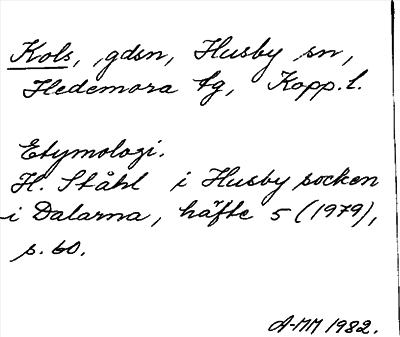 Kols, gdsn, Husby sn,
Hedemora tg, Kopp. l.
Etymologi.
H. Ståhl i Husby socken
i Dalarna, häfte 5 (1979),
s. 60.
A-MM 1982.